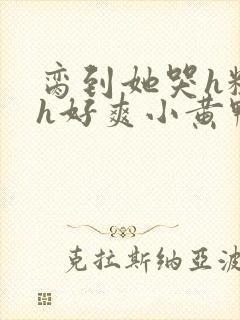 脔到她哭h粗
h好爽小黄鸭
克拉斯纳亚波